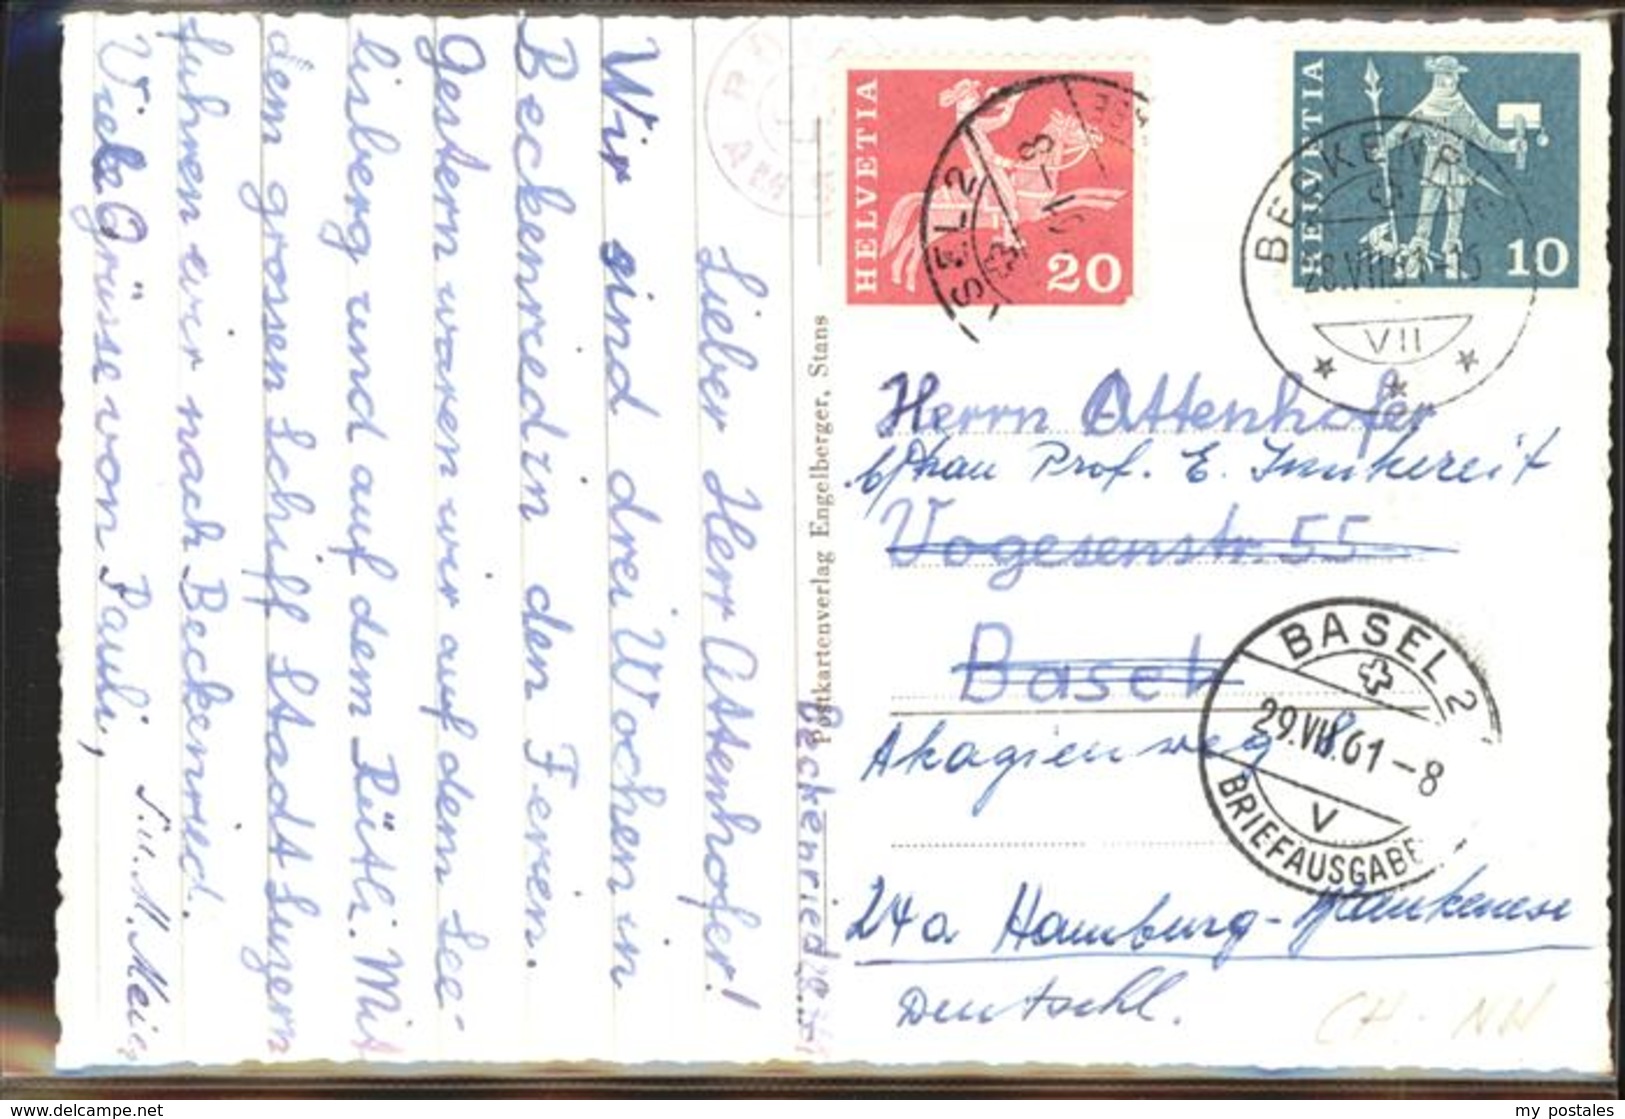 Beckenried 28. 
Lieber Herr Attenhofer!
Wir sind drei Wochen in
Beckenried in den Ferien.
Gestern waren wir auf dem See-
lisberg und auf dem Rütli. Mit
dem grossen Schiff Stadt Luzern
fuhren wir nach Beckenried.
Viele Grüsse von Pauli,
S. u. M. Meier
Postkartenverlag Engelberger, Stans
HELVETIA
20
HELVETIA
10
BECKENRIED
28.VIII.61-15
VII
SEL 2
Herrn Attenhofer
b/Frau Prof. E. Junkereit
Vogesenstr. 55
Basel
BASEL 2
29.VIII.61-8
V
BRIEFAUSGABE
Akazienweg 8
24a Hamburg-Blankenese
Deutschl.
CH. NW
my postales
www.delcampe.net